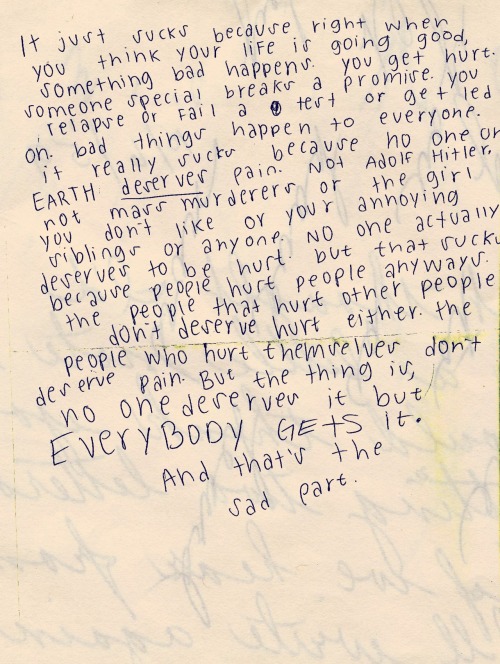 It just sucks because right when
you think your life is going good,
something bad happens. you get hurt.
someone special breaks a promise. you
relapse or fail a test or get led
on. bad things happen to everyone.
it really sucks because no one on
EARTH deserves pain. Not Adolf Hitler,
not mass murderers or the girl
you don't like or your annoying
siblings or anyone. NO one actually
deserves to be hurt. but that sucks
because people hurt people anyways.
the people that hurt other people
don't deserve hurt either. the
people who hurt themselves don't
deserve pain. But the thing is,
no one deserves it but
EVERYBODY GETS it.
And that's the
sad part.